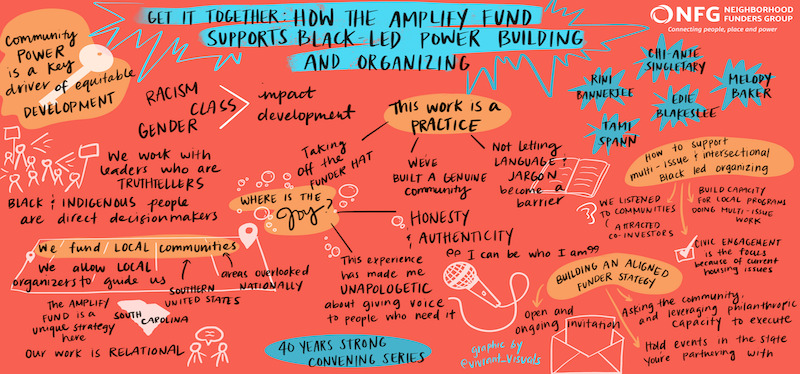 GET IT TOGETHER: HOW THE AMPLIFY FUND
SUPPORTS BLACK-LED POWER BUILDING
AND ORGANIZING
NFG NEIGHBORHOOD
FUNDERS GROUP
Connecting people, place and power
Community
POWER
is a key
driver of equitable
DEVELOPMENT
RACISM
CLASS
GENDER
impact
development
This work is a
PRACTICE
Taking
off the
FUNDER HAT
WE'VE
BUILT A GENUINE
community
Not letting
LANGUAGE &
JARGON
become a
barrier
CHI-ANTE
SINGLETARY
RINI
BANNERJEE
MELODY
BAKER
EDIE
BLAKESLEE
TAMI
SPANN
We work with
leaders who are
TRUTHTELLERS
BLACK & INDIGENOUS people
are direct decisionmakers
WHERE IS THE
joy?
HONESTY
&
AUTHENTICITY
"I can be who I am"
This experience
has made me
UNAPOLOGETIC
about giving voice
to people who need it
We fund LOCAL communities
We allow LOCAL
organizers to guide us
SOUTHERN
UNITED STATES
areas overlooked
NATIONALLY
THE AMPLIFY
FUND is a
unique strategy
here
SOUTH
CAROLINA
Our work is RELATIONAL
How to support
multi-issue & intersectional
Black led organizing
WE LISTENED
TO COMMUNITIES
& ATTRACTED
CO-INVESTORS
BUILD CAPACITY
FOR LOCAL PROGRAMS
DOING MULTI-ISSUE
WORK
CIVIC ENGAGEMENT
is the focus
because of current
housing issues
BUILDING AN ALIGNED
FUNDER STATEGY
Open and
ongoing invitation
Asking the community,
and leveraging philanthropic
CAPACITY to execute
Hold events in the state
you're partnering with
40 YEARS STRONG
CONVENING SERIES
graphic by
@vibrant_visuals